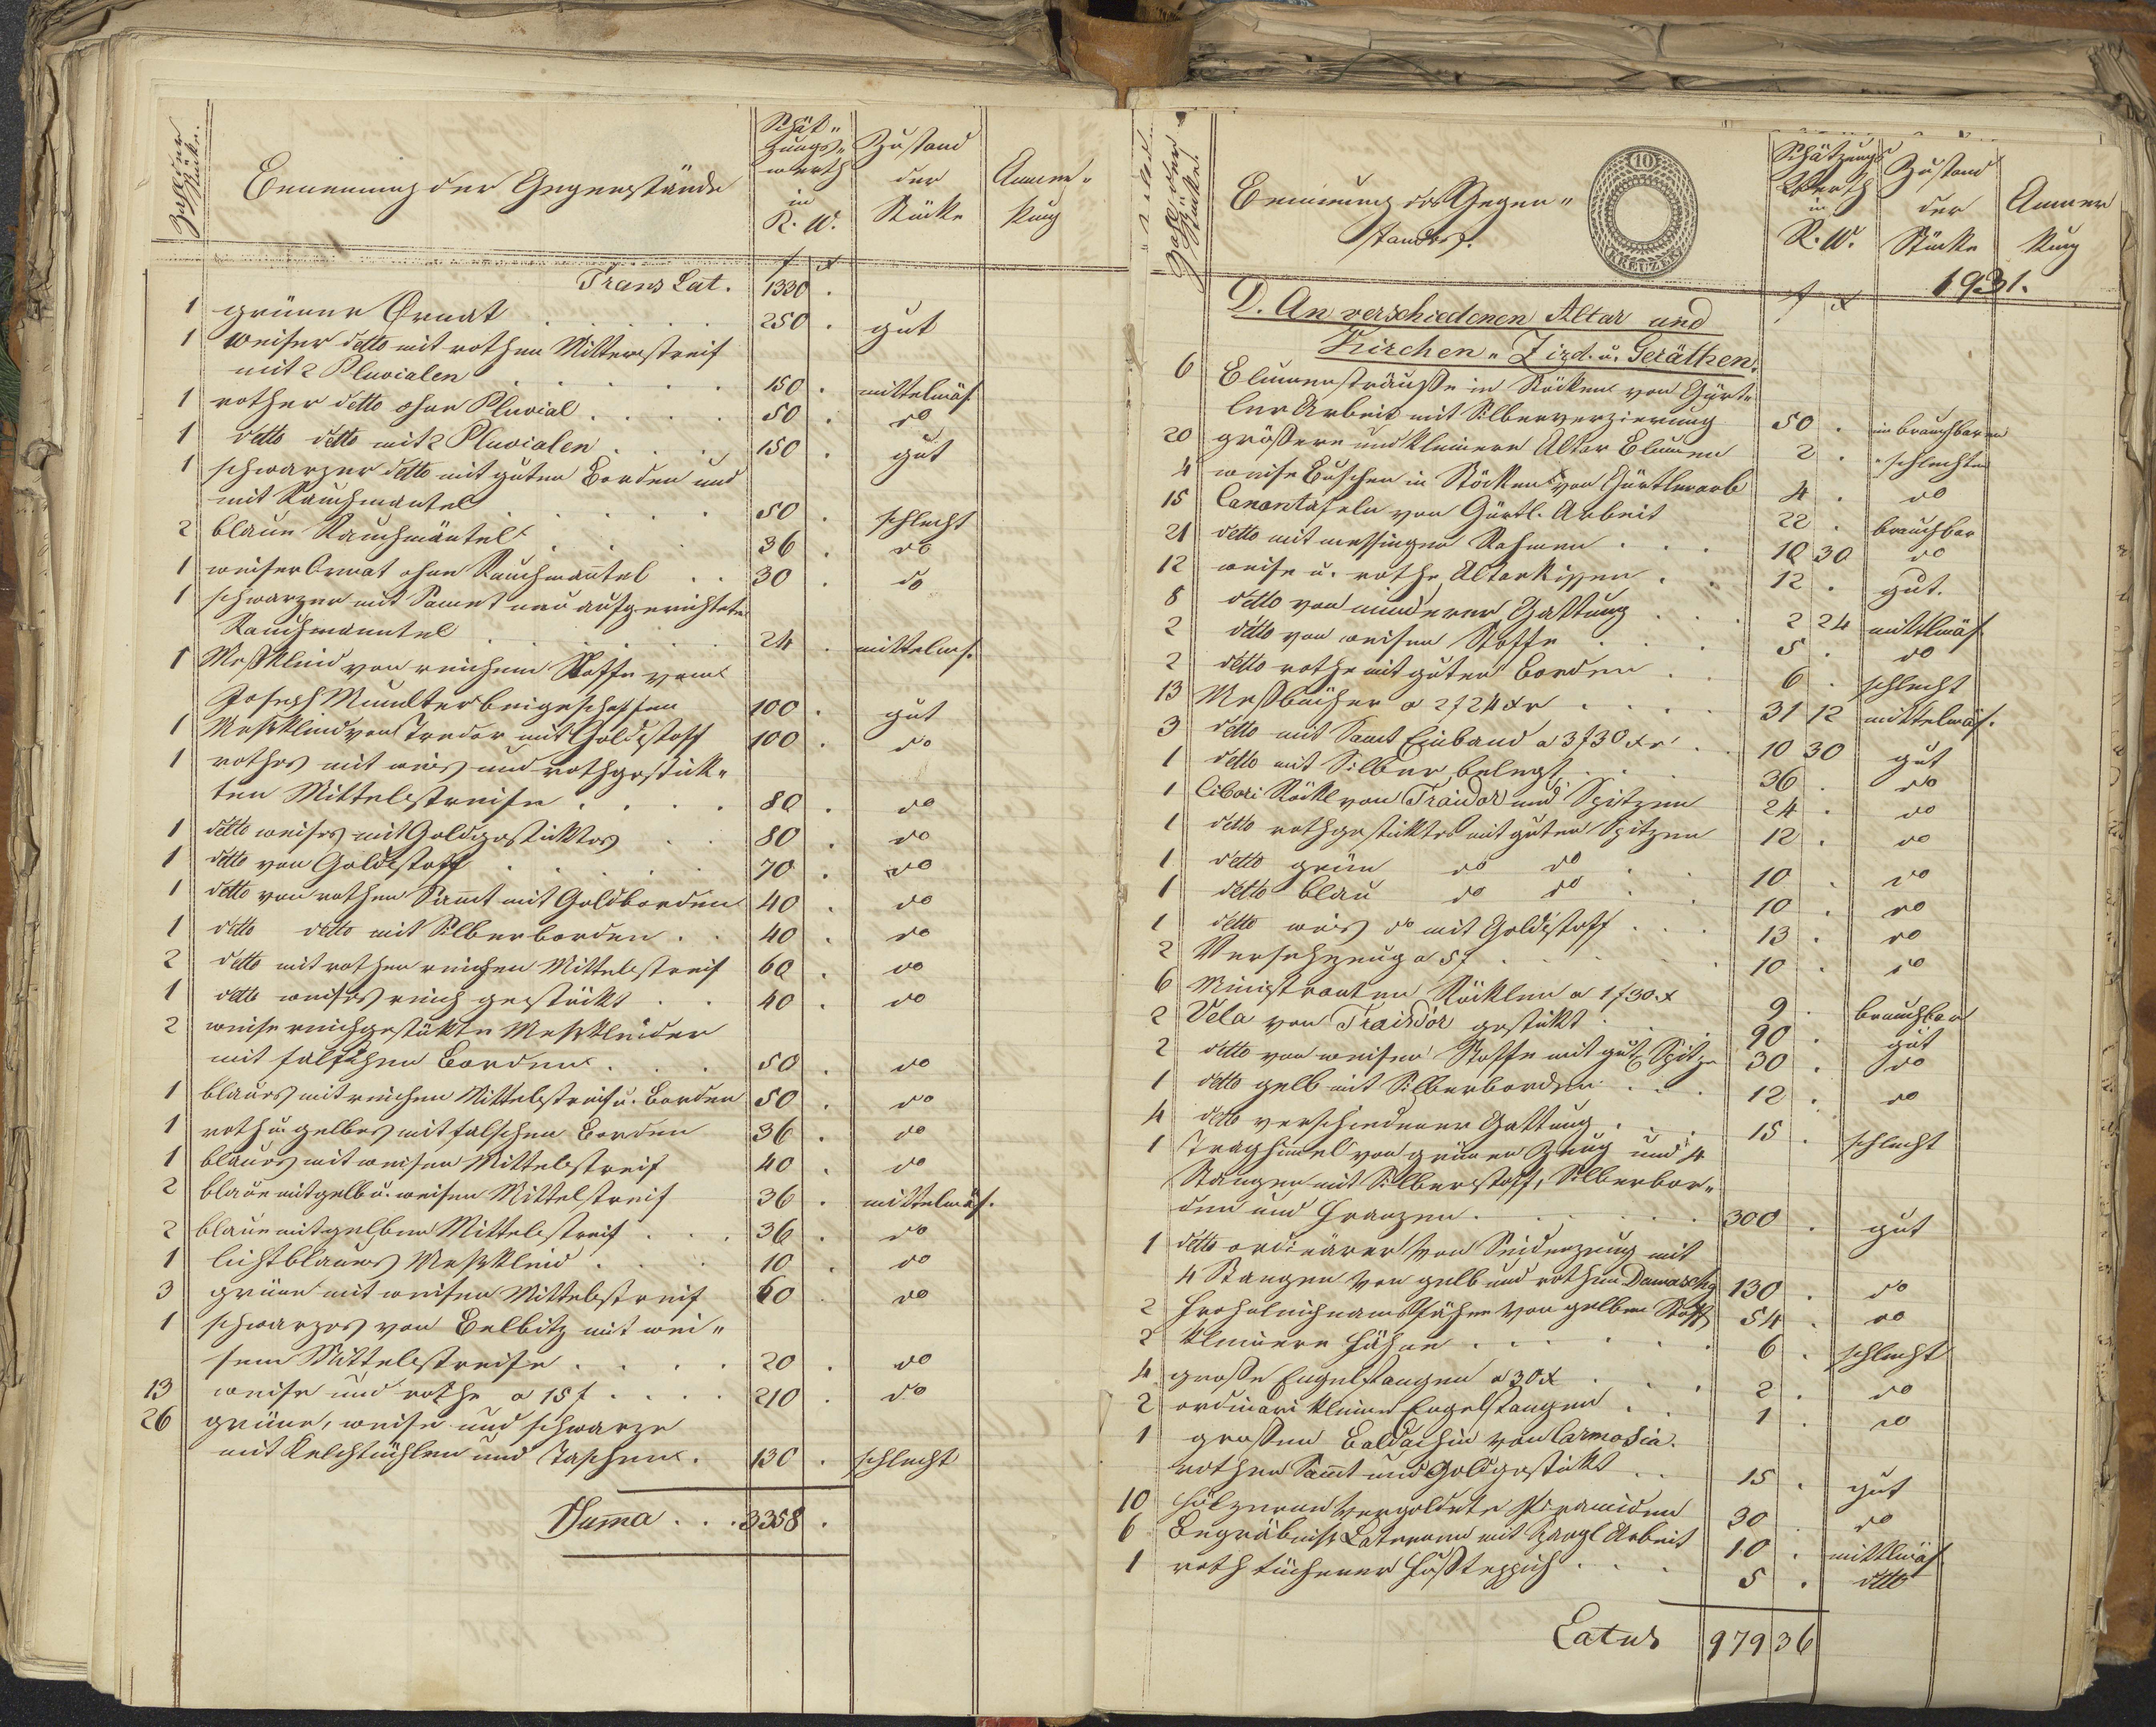 Zahl der
Stücke.
Benennung der Gegenstände
Schät„
zungs„
werth
in
R. W.
Zustand
der
Stücke
Anmer„
kung
f x
Trans Lat. 1330 .
1 grüner Ornat . . . . . 250 . gut
1 weiser detto mit rothen Mittelstreif
mit 2 Pluvialen . . . . . 150 . mittelmäs
1 rother detto ohne Pluvial . . . . 50 . do
1 detto detto mit 2 Pluvialen . . . . 150 . gut
1 schwarzer detto mit guten Borden und
mit Rauchmantel . . . . . 50 . schlecht
2 blaue Rauchmäntel . . . . 36 . do
1 weiser Ornat ohne Rauchmantel . . 30 . do
1 schwarzer mit Samet neu aufgerichteter
Rauchmantel . . . . . 24 . mittelms.
1 Meßkleid von reichem Stoffe vom
Joseph beigeschaffen 100 . gut
1 Meßkleid von Tredor mit Goldstoff 100 . do
1 rothes mit weis und rothgestick„
ten Mittelstreife . . . . 80 . do
1 detto weises mit Goldgesticktes . . 80 . do
1 detto von Goldstoff . . . . . 70 . do
1 detto von rothen Samt mit Goldborden 40 . do
1 detto detto mit Silberborden . . 40 . do
2 detto mit rothen reichen Mittelstreif 60 . do
1 detto weises reich gestückt . . 40 . do
2 weise reichgestükte Meßkleider
mit falschen Borden . . . 50 . do
1 blaues mit reichen Mittelstreif u. Borden 50 . do
1 roth u. gelbes mit falschen Borden 36 . do
1 blaues mit weisen Mittelstreif 40 . do
2 blaue mit gelb u. weisen Mittelstreif 36 . mittelmäs.
2 blaue mit gelben Mittelstreif . . . 36 . do
1 lichtblaues Meßkleid . . . . 10 . do
3 grüne mit weisen Mittelstreif 60 . do
1 schwarzes von mit wei„
sem Mittelstreife . . . . 20 . do
13 weise und rothe a 15 f . . . . 210 . do
26 grüne, weise und schwarze
mit Kelchtüchlen und Taschen . 130 . schlecht
Suma . . . 3358 .
Zahl der
Stücke.
Benennung des Gegen„
standes.
10
KREUZER
Schätzungs
Werth
in
R. W.
Zustand
der
Stücke
Anmer
kung
1931.
f x
D. An verschiedenen Altar und
Kirchen „ Zird. u. Geräthen.
6 Blumensträuße in Stöcken von Gürt„
ler Arbeit mit Silberverzierung 50 . im brauchbaren
20 größere und kleinere Altar Blumen 2 . „schlechten
4 weise Buschen in Stöcken von Gürtlerarb 4 . do
15 Canontafeln von Gürtl. Arbeit 22 . brauchbar
21 detto mit messingen Rahmen . . . 10 30 do
12 weise u. rothe Altarkissen . . 12 . gut.
8 detto von minderer Gattung . . . 2 24 mittlmäs
2 detto von weisen Stoffe . . . 5 . do
2 detto rothe mit guten Borden . . 6 . schlecht
13 Meßbücher a 2 f 24 xr . . . . 31 12 mittelmäs.
3 detto mit Samt Einband a 3 f 30 xr . . 10 30 gut
1 detto mit Silber belegt . . . 36 . do
1 Cibori Röckl von Traidor und Spitzen 24 . do
1 detto rothgesticktes mit guten Spitzen 12 . do
1 detto grün do do . . 10 . do
1 detto blau do do . . 10 . do
1 detto weis do mit Goldstoff . . . 13 . do
2 Versehzeug a 5 f . . . . . 10 . do
6 Ministranten Röcklen a 1 f 30 x 9 . brauchbar
2 Vela von Traidor gestückt . . . 90 . gut
2 detto von weisen Stoffe mit gut. Spitze 30 . do
1 detto gelb mit Silberborden . . . 12 . do
4 detto verschiedener Gattung . . . 15 . schlecht
1 Traghimel von grünen Zeug und 4
Stangen mit Silberstoff, Silberbor„
den und Franzen . . . . . 300 . gut
1 detto ordinärer von Seidenzeug mit
4 Stangen von gelb und rothen Damaschg 130 . do
2 Frohnleichnamsfähne von gelben Stoff 54 . do
2 kleinere Fähne . . . . . 6 . schlecht
4 große Engelstangen a 30 x . . . 2 . do
2 ordinäri kleine Engelstangen . . 1 . do
1 großen Baldachin von Carmosin.
rothen Samt und Goldgestückt . . 15 . gut
10 hölzerne vergoldete Piramiden 30 . do
6 Begräbniß Laternen mit Arbeit 10 . mittlmäs
1 roth tüchener Fußteppich . . . 5 . detto
Latus 979 36